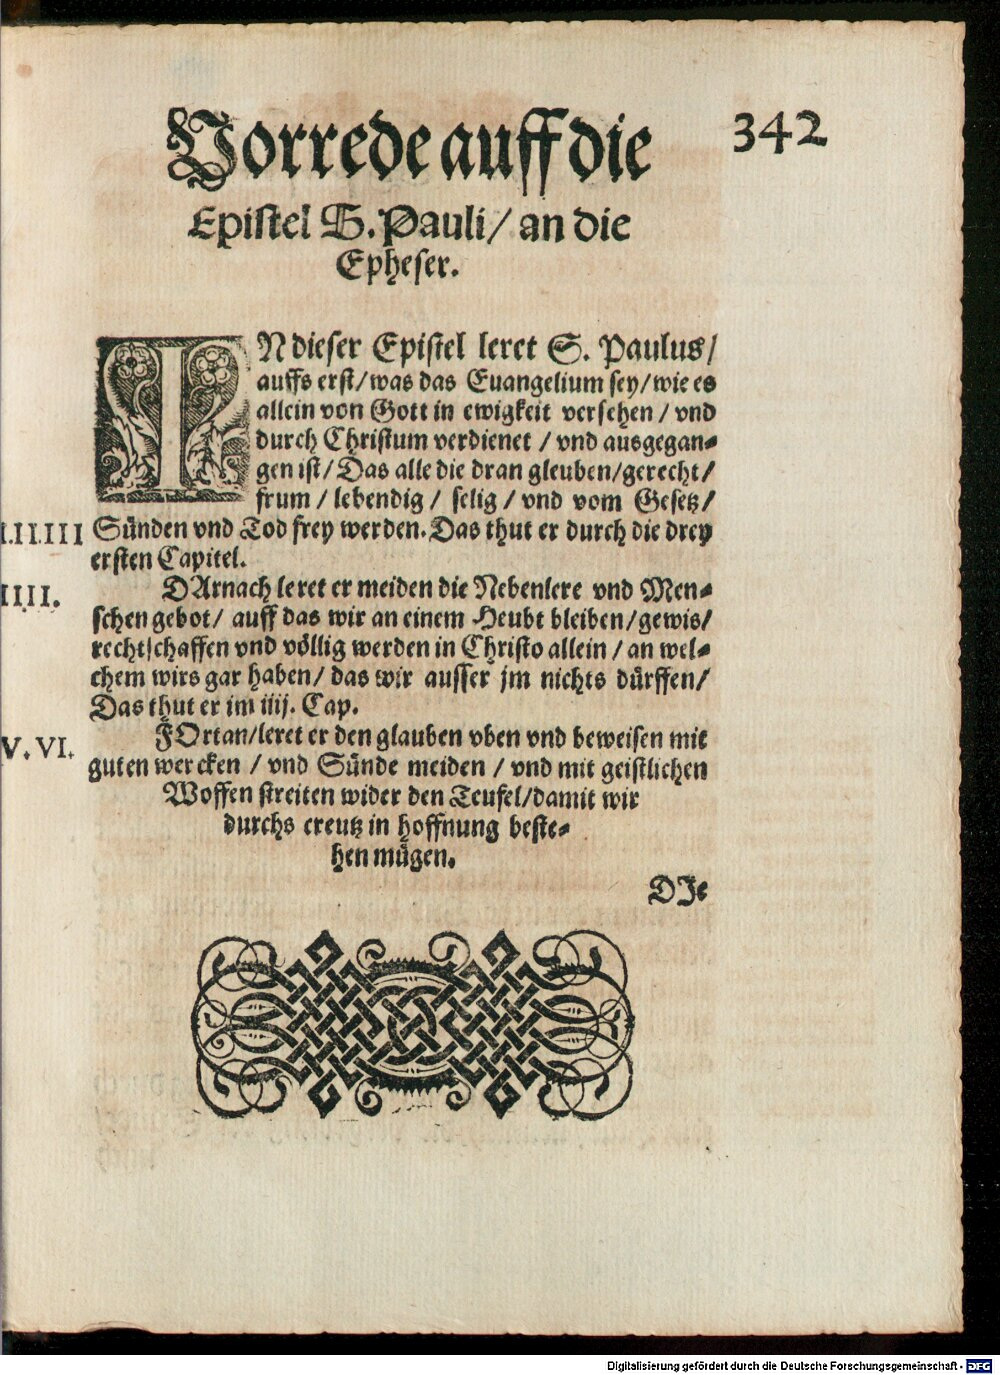 Vorrede auff die
342
Epistel S. Pauli/ an die
Epheser.
IN dieser Epistel leret S. Paulus/
auffs erst/was das Euangelium sey/wie es
allein von Gott in ewigkeit versehen/vnd
durch Christum verdienet/vnd ausgegan-
gen ist/Das alle die dran gleuben/gerecht/
frum/lebendig/selig/vnd vom Gesetz/
I.II.III Sünden vnd Tod frey werden. Das thut er durch die drey
ersten Capitel.
IIII. DArnach leret er meiden die Nebenlere vnd Men-
schen gebot/auff das wir an einem Heubt bleiben/gewis/
rechtschaffen vnd völlig werden in Christo allein/an wel-
chem wirs gar haben/das wir ausser jm nichts dürffen/
Das thut er im iiij. Cap.
V. VI. FOrtan/leret er den glauben vben vnd beweisen mit
guten wercken/vnd Sünde meiden/vnd mit geistlichen
Woffen streiten wider den Teufel/damit wir
durchs creutz in hoffnung beste-
hen mügen.
DJe
Digitalisierung gefördert durch die Deutsche Forschungsgemeinschaft - DFG